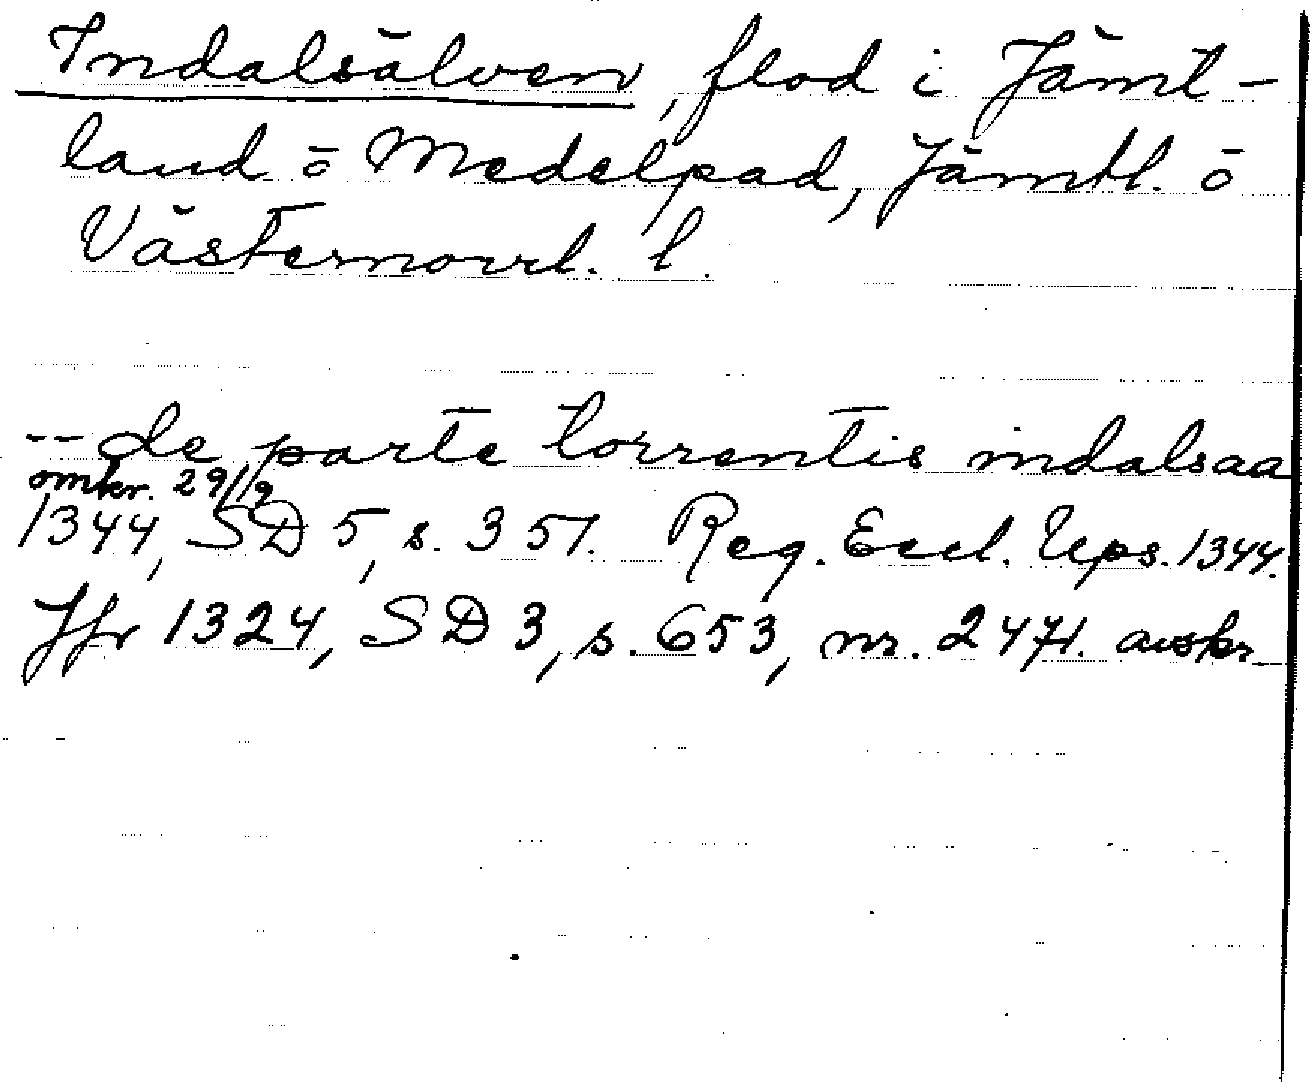 Indalsälven, flod i Jämt-
land ō Medelpad, Jämtl. ō
Västernorrl. l.
-- de parte torrentis indalsaa
omkr. 29/9
1344, SD 5, s. 351. Reg. Eccl. Ups. 1344.
Jfr 1324, SD 3, s. 653, nr. 2471. avskr